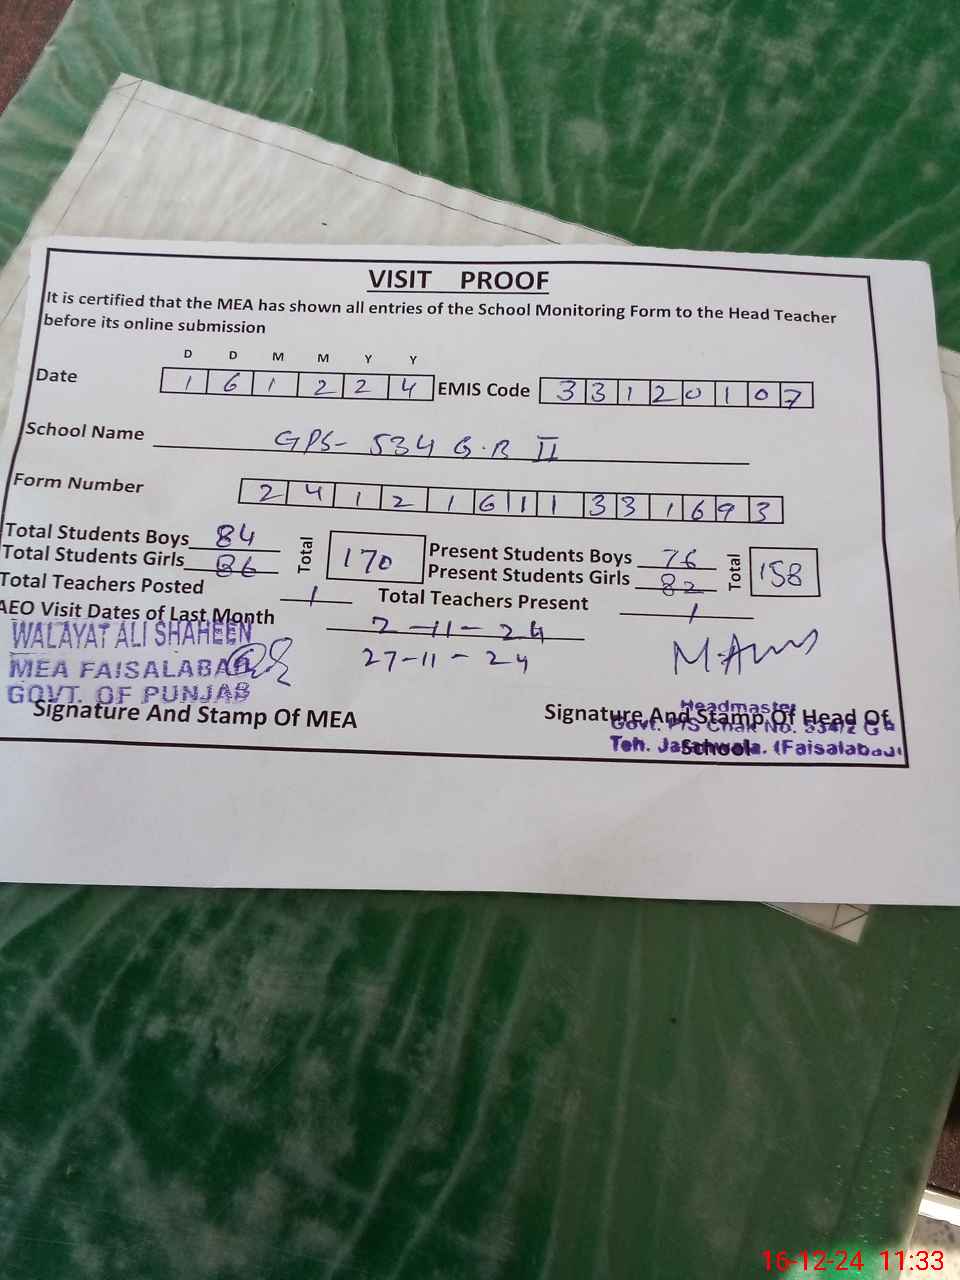 VISIT PROOF
It is certified that the MEA has shown all entries of the School Monitoring Form to the Head Teacher
before its online submission
D D M M Y Y
Date 1 6 1 2 2 4 EMIS Code 3 3 1 2 0 1 0 7
School Name GPS- 534 G.B II
Form Number 2 4 1 2 1 6 1 1 1 3 3 1 6 9 3
Total Students Boys 84
Total Students Girls 86
Total 170
Present Students Boys 76
Present Students Girls 82
Total 158
Total Teachers Posted 1 Total Teachers Present 1
AEO Visit Dates of Last Month 2-11-24
27-11-24
WALAYAT ALI SHAHEEN
MEA FAISALABAD
GOVT. OF PUNJAB
Signature And Stamp Of MEA
Headmaster
Signature And Stamp Of Head Of
School
Govt. P/S Chak No. 534/2 G B
Teh. Jaranwala. (Faisalabad)
16-12-24 11:33